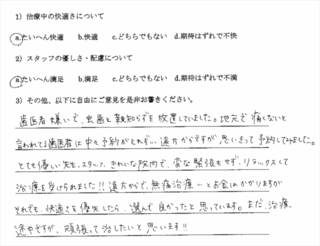 1）治療中の快適さについて
a.たいへん快適 b.快適 c.どちらでもない d.期待はずれで不快
2）スタッフの優しさ・配慮について
a.たいへん満足 b.満足 c.どちらでもない d.期待はずれで不満
3）その他、以下に自由にご意見を是非お書きください。
歯医者嫌いで、虫歯と親知らずを放置していました。地元で痛くないと
言われてる歯医者は中々予約がとれず… 遠方からですが思いきって予約してみました。
とても優しい先生、スタッフ、きれいな院内で、変な緊張もせず、リラックスして
治療を受けられました!! 遠方から、無痛治療…とお金はかかりますが
それでも、快適さを優先したら、選んで良かったと思っています。まだ、治療
途中ですが、頑張って治したいと思います!!